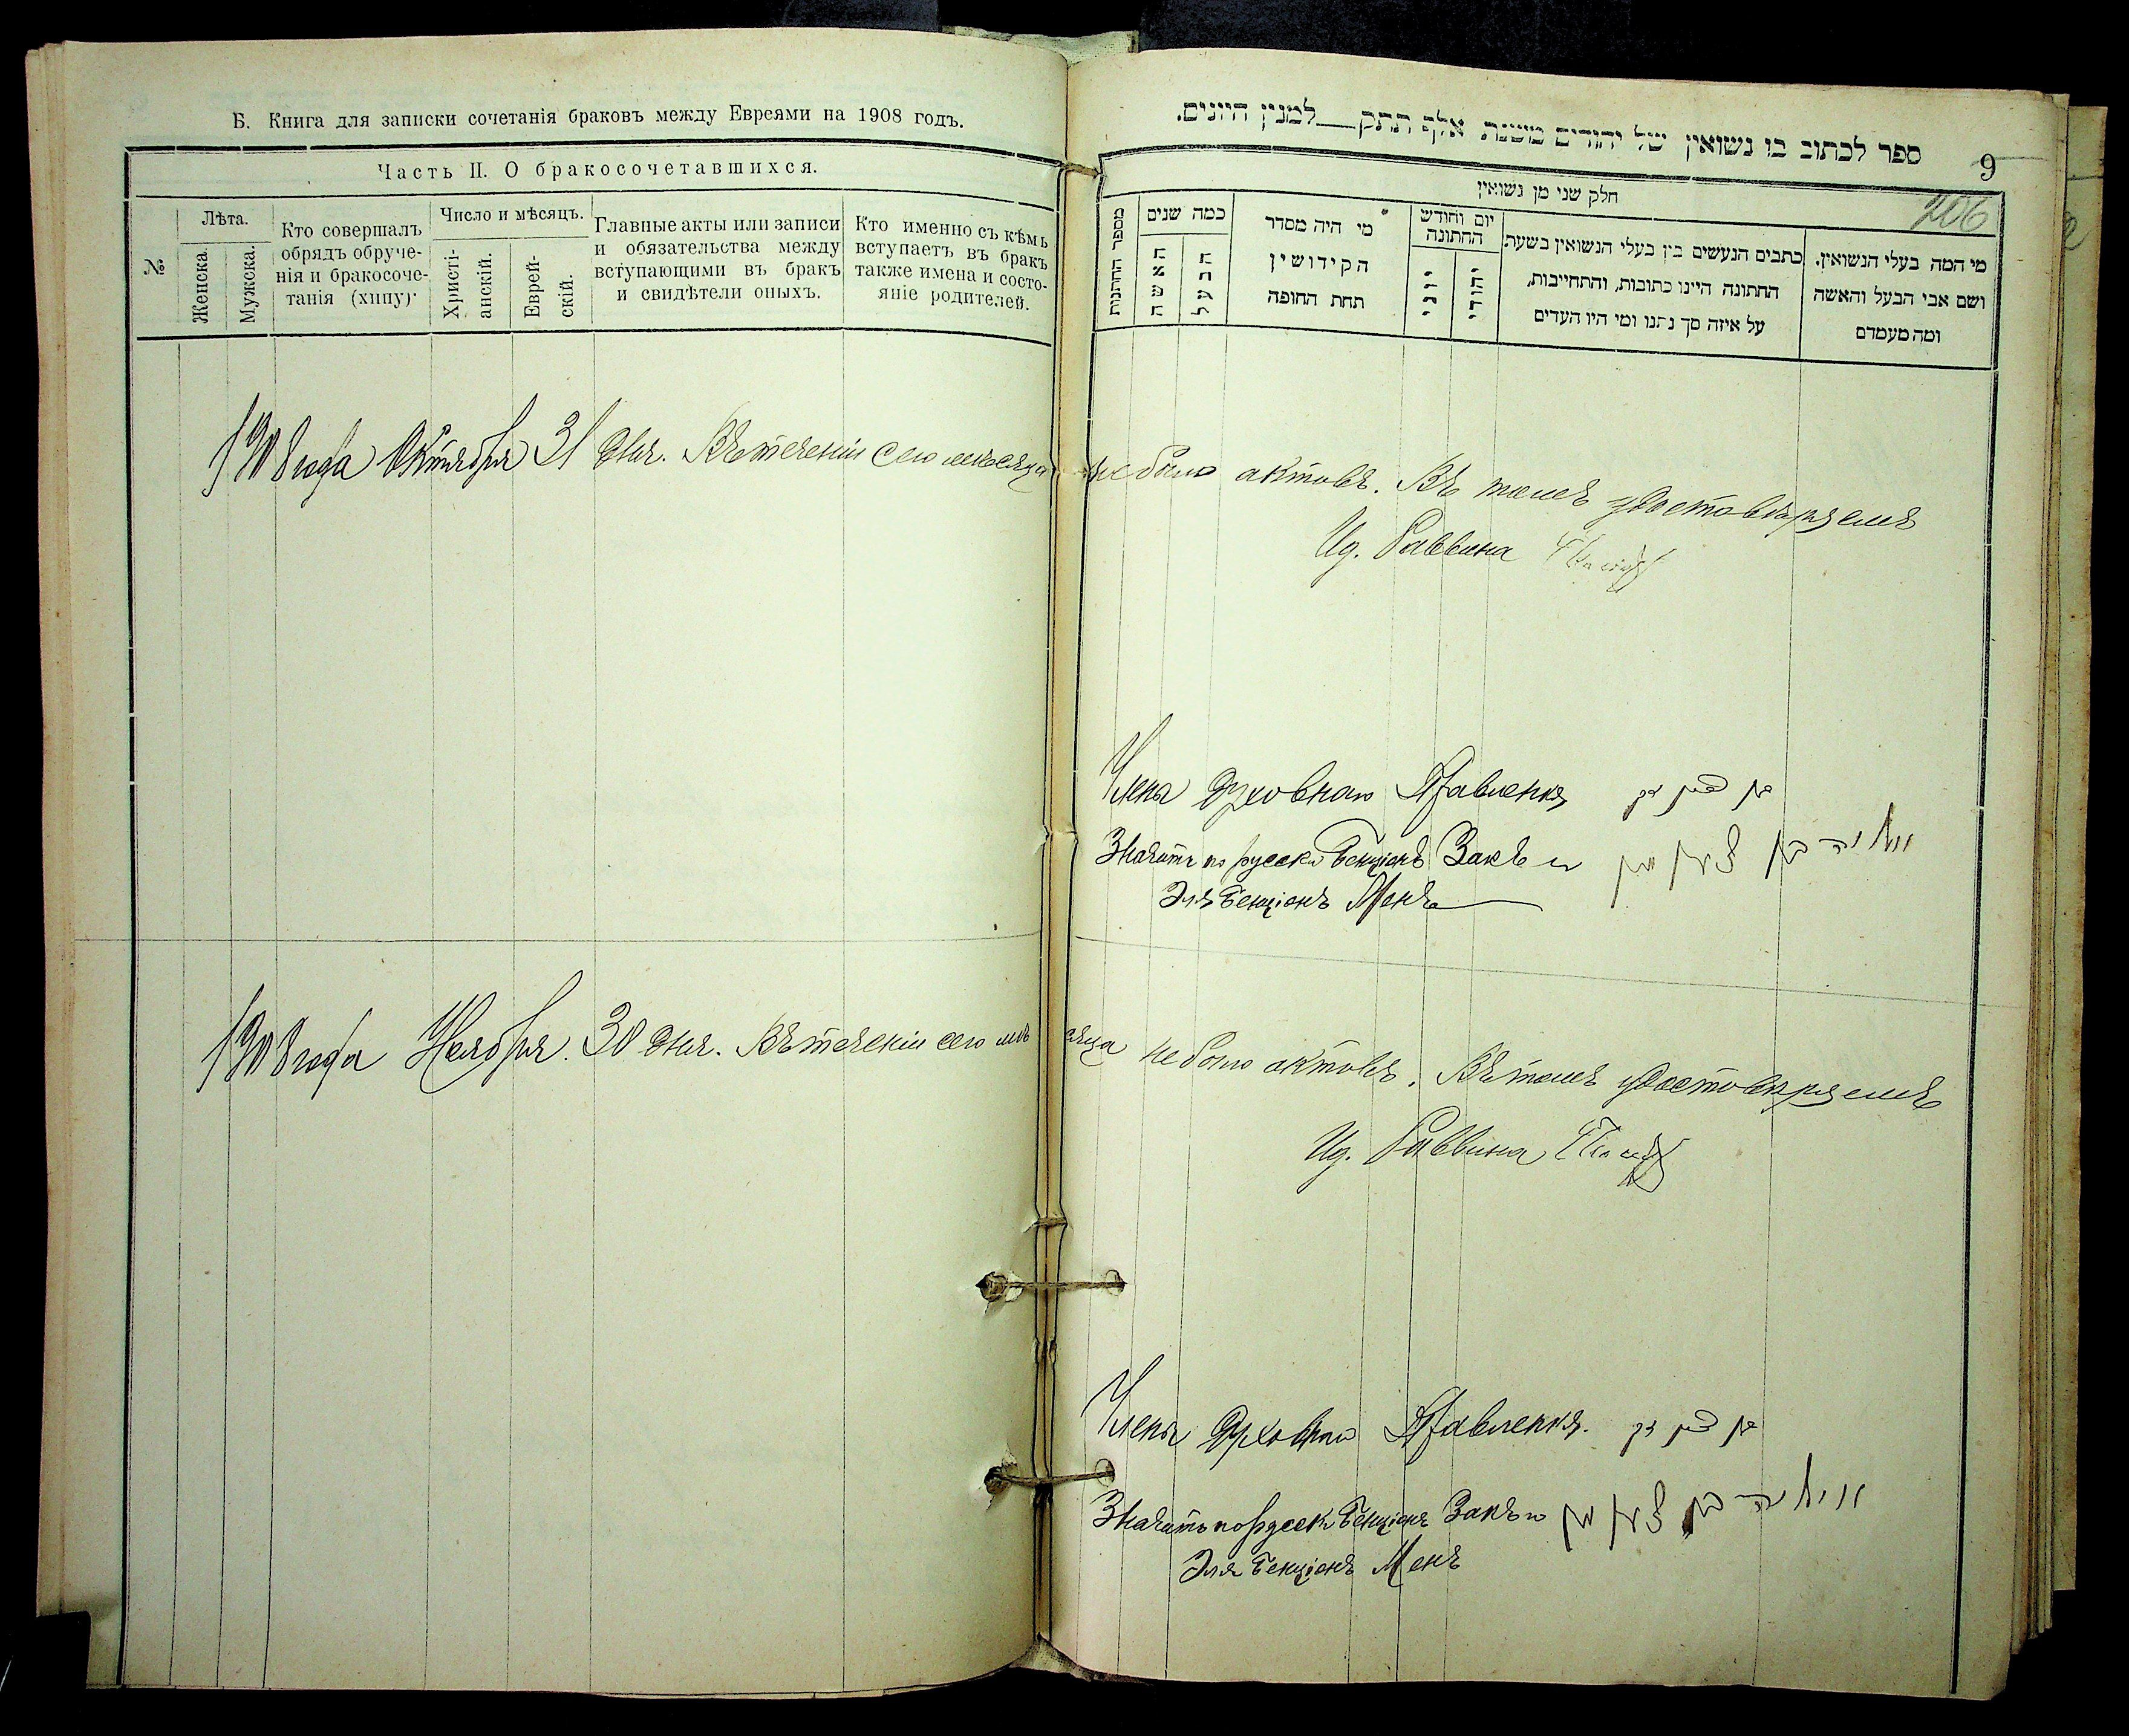 Б. Книга для записки сочетанія браковъ между Евреями на 1908 годъ.
Часть II. О бракосочетавшихся.
№
Лѣта.
Женска.
Мужска.
Кто совершалъ
обрядъ обруче-
нія и бракосоче-
танія (хипу)
Число и мѣсяцъ.
Христі-
анскій.
Еврей-
скій.
Главные акты или записи
и обязательства между
вступающими въ бракъ
и свидѣтели оныхъ.
Кто именно съ кѣмъ
вступаетъ въ бракъ
также имена и состо-
яніе родителей.
ספר לכתוב בו נשואין של יהודים משנת אלף תתק למנין היונים.
9
206
חלק שני מן נשואין
מספר החתונות
כמה שנים
האשה
הבעל
מי היה מסדר
הקידושין
תחת החופה
יום וחודש
החתונה
יוני
יהודי
כתבים הנעשים בין בעלי הנשואין בשעת
החתונה היינו כתובות, והתחייבות,
על איזה סך נתנו ומי היו העדים
מי המה בעלי הנשואין.
ושם אבי הבעל והאשה
ומה מעמדם
1908 года Октября 31 дня. Въ теченіи сего мѣсяца не было актовъ. Въ томъ удостовѣряемъ
Ид. Раввина
Члены Духовнаго Правленія
Значитъ по русски Бенціонъ Закъ и
Эля Бенціонъ Менъ
1908 года Ноября 30 дня. Въ теченіи сего мѣсяца не было актовъ. Въ томъ удостовѣряемъ
Ид. Раввина
Члены Духовнаго Правленія.
Значитъ по русски Бенціонъ Закъ и
Эля Бенціонъ Менъ